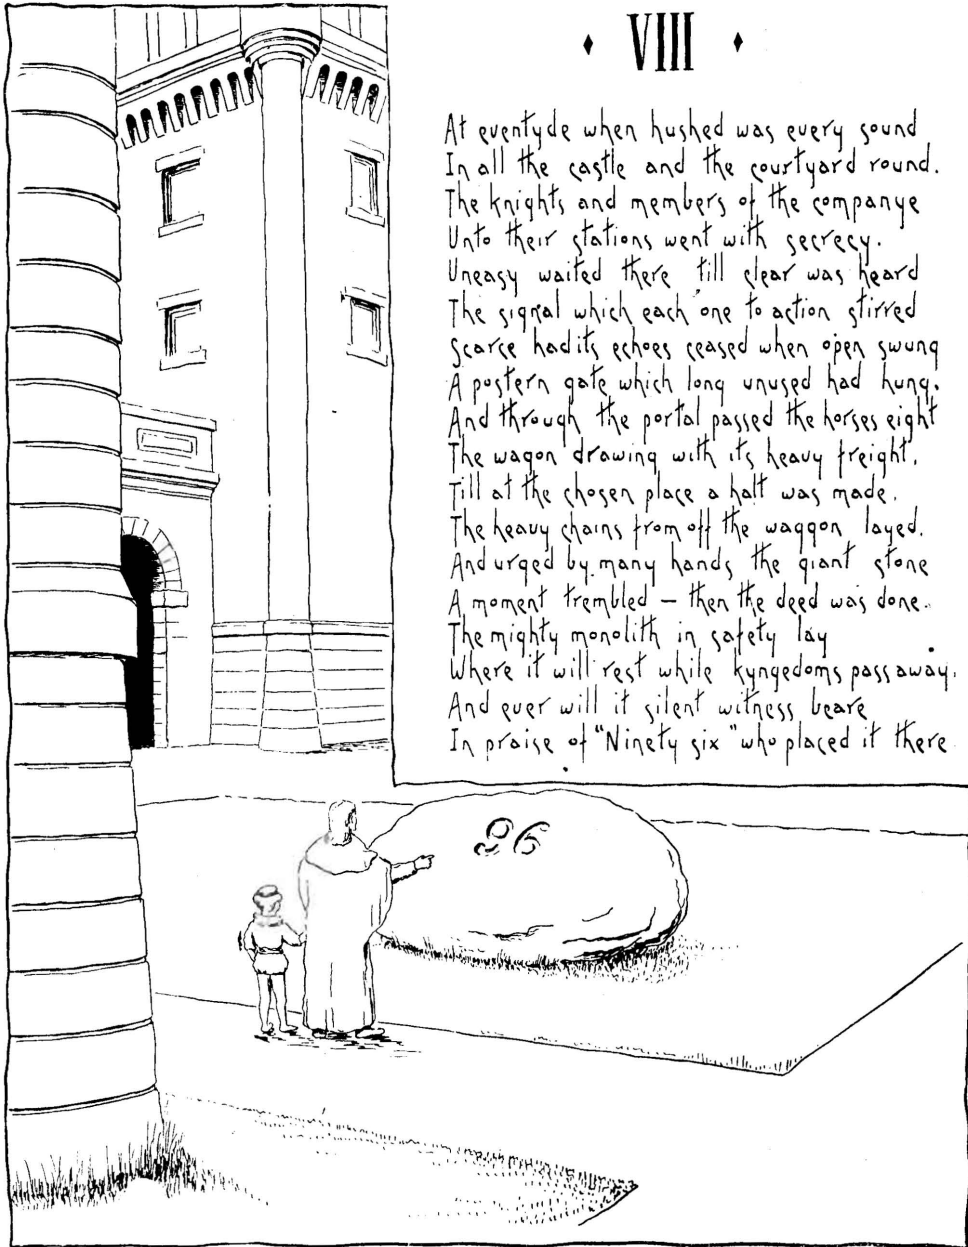 VIII
At eventyde when hushed was every sound
In all the castle and the courtyard round.
The knights and members of the companye
Unto their stations went with secrecy.
Uneasy waited there till clear was heard
The signal which each one to action stirred
Scarce had its echoes ceased when open swung
A postern gate which long unused had hung.
And through the portal passed the horses eight
The wagon drawing with its heavy freight,
Till at the chosen place a halt was made,
The heavy chains from off the waggon layed.
And urged by many hands the giant stone
A moment trembled — then the deed was done.
The mighty monolith in safety lay
Where it will rest while kyngedoms pass away.
And ever will it silent witness beare
In praise of "Ninety six" who placed it there
96